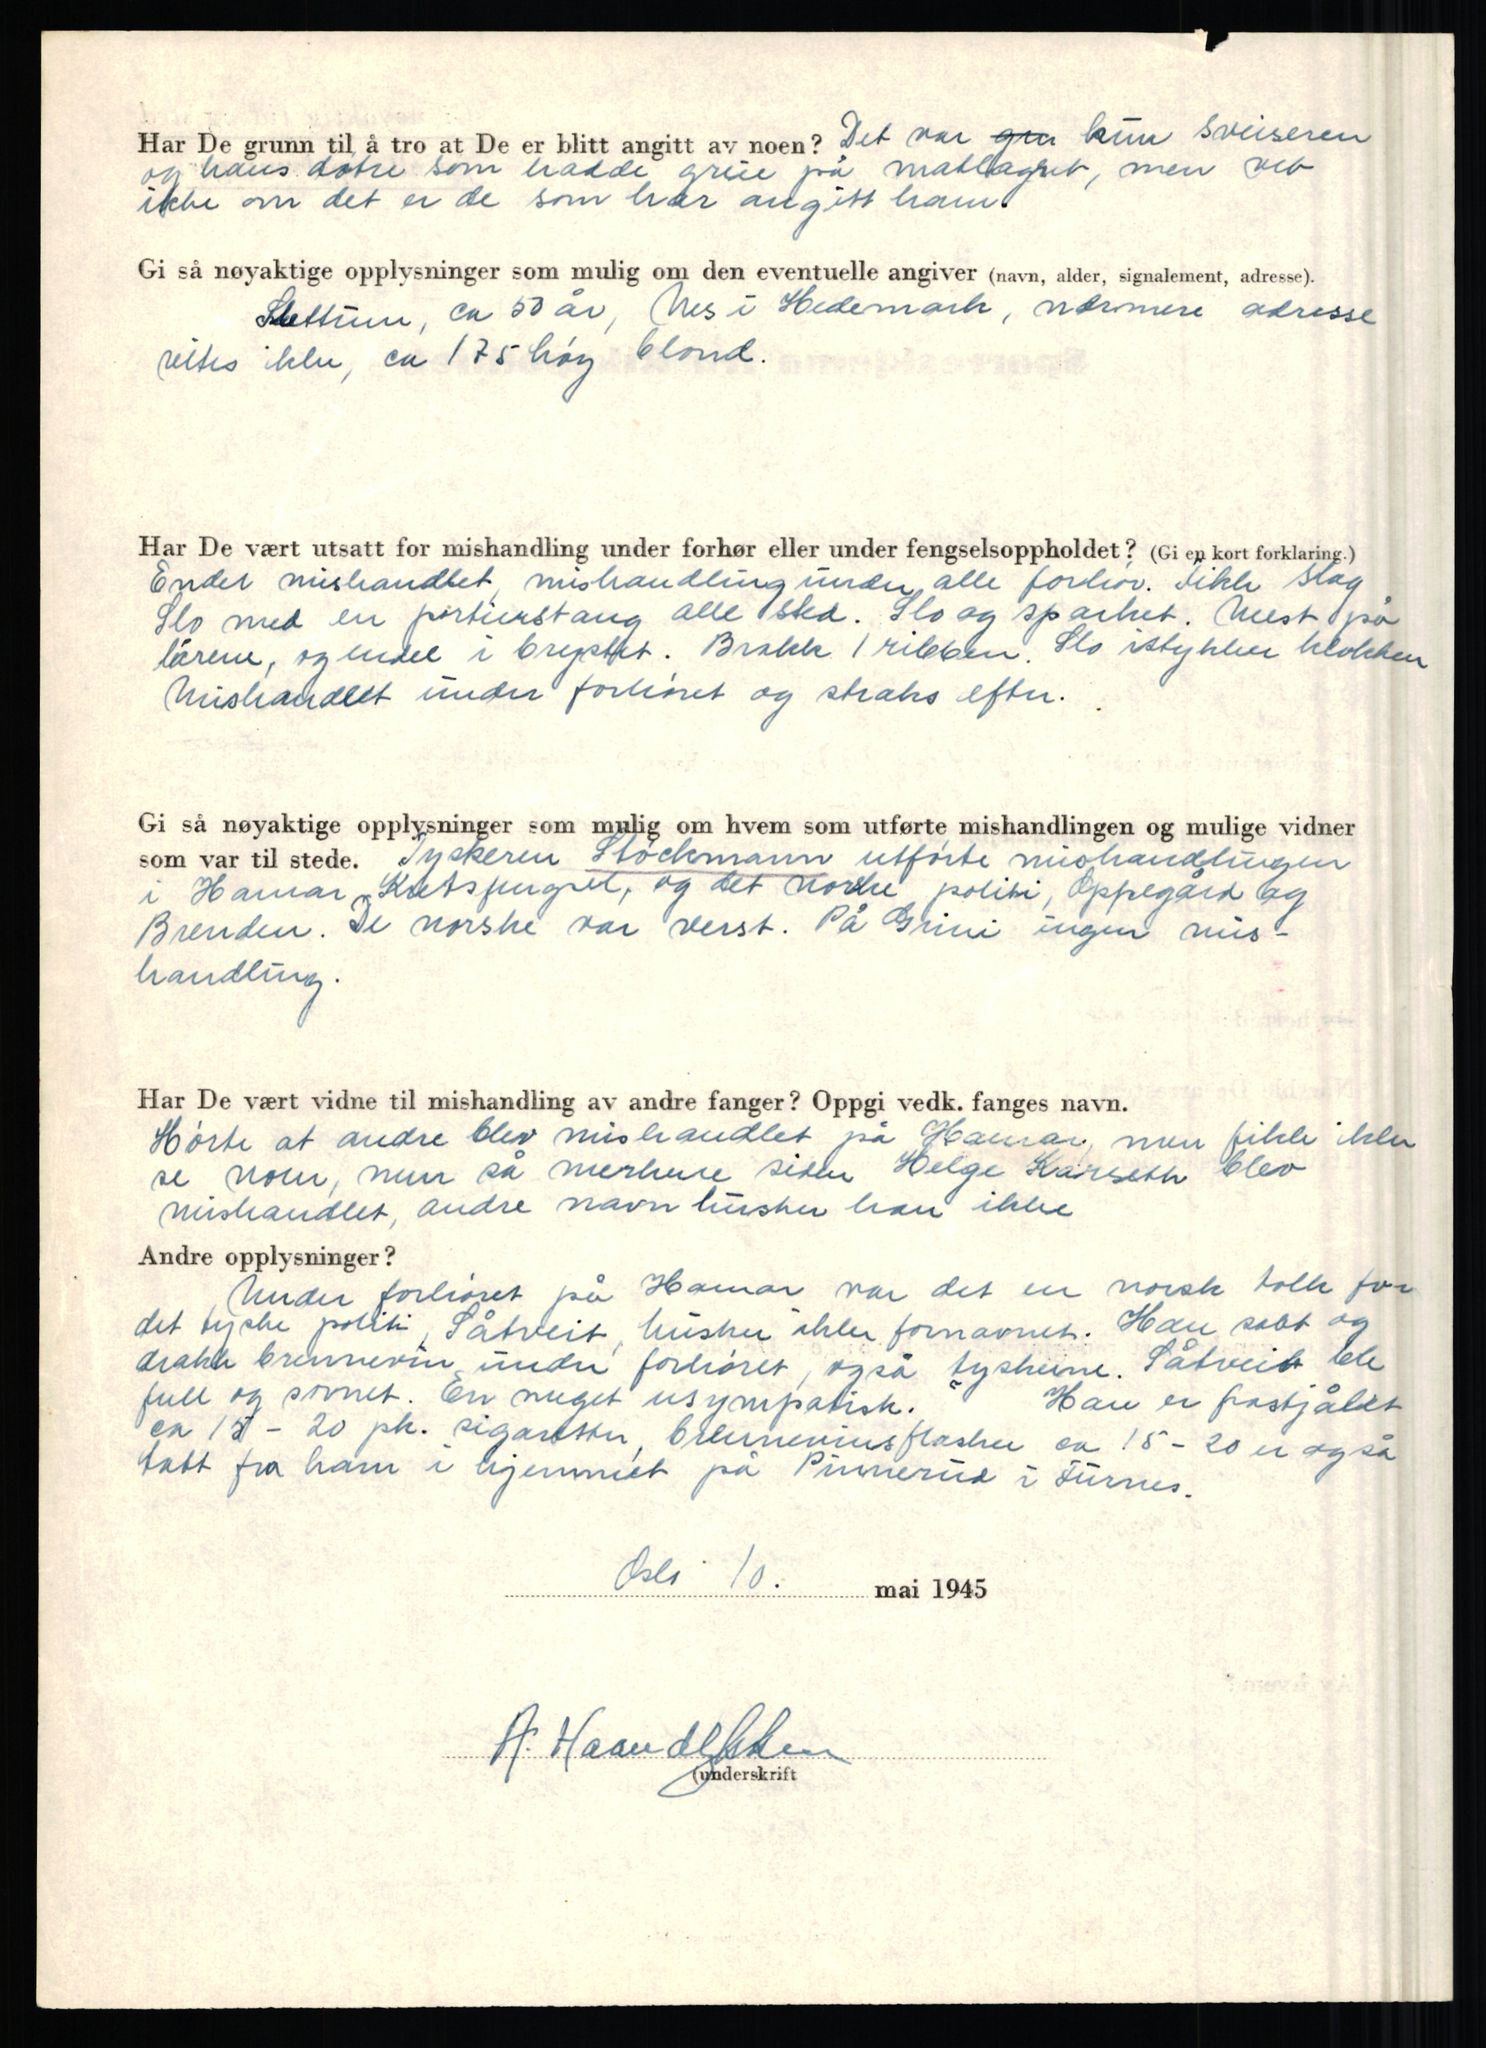 Har De grunn til å tro at De er blitt angitt av noen? Det var gru kun sveiseren
og hans dotre som hadde greie på matlagret, men vet
ikke om det er de som har angitt ham.
Gi så nøyaktige opplysninger som mulig om den eventuelle angiver (navn, alder, signalement, adresse).
Slettum, ca 50 år, Nes i Hedemark, nærmere adresse
vites ikke, ca 175 høy blond.
Har De vært utsatt for mishandling under forhør eller under fengselsoppholdet? (Gi en kort forklaring.)
Endel mishandlet, mishandling under alle forhör. Fikk slag
Slo med en portierstang alle sted. Slo og sparket. Mest på
lårene, og endel i brystet. Brakk 1 ribben. Slo istykker klokken
Mishandlet under forhöret og straks efter.
Gi så nøyaktige opplysninger som mulig om hvem som utførte mishandlingen og mulige vidner
som var til stede. Tyskeren Stöckmann utførte mishandlingen
i Hamar Kretsfengsel, og det norske politi, Oppegård og
Brenden. De norske var verst. På Grini ingen mis-
handling.
Har De vært vidne til mishandling av andre fanger? Oppgi vedk. fanges navn.
Hörte at andre blev mishandlet på Hamar, men fikk ikke
se noen, men så merkene siden Helge Karseth blev
mishandlet, andre navn husker han ikke
Andre opplysninger?
Under forhöret på Hamar var det en norsk tolk for
det tyske politi, Såtveit, husker ikke fornavnet. Han satt og
drakk brennevin under forhöret, også tyskerne. Såtveit ble
full og sovnet. En meget usympatisk. " Han er frastjålet
ca 15 - 20 pk. sigaretter, brennevinsflasker ca 15 - 20 er også
tatt fra ham i hjemmet på Pinnerud i Furnes.
Oslo 10. mai 1945
A. Haandlykken
(underskrift